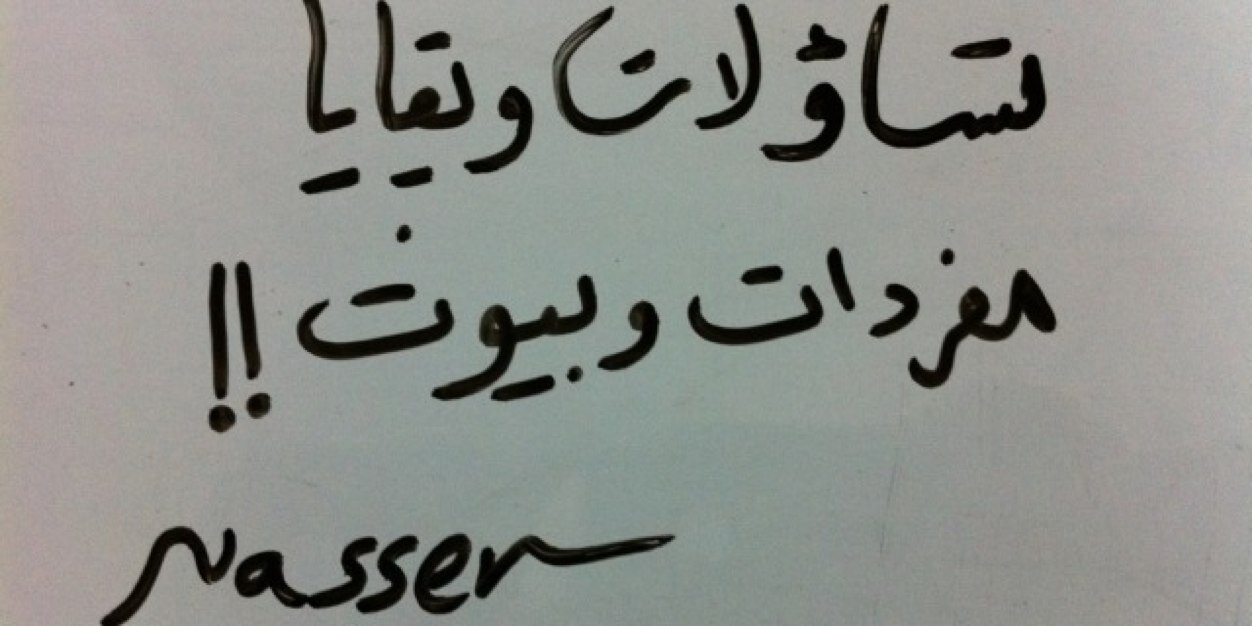 تساؤلات وبقايا
مفردات وبيوت !!
Nasser